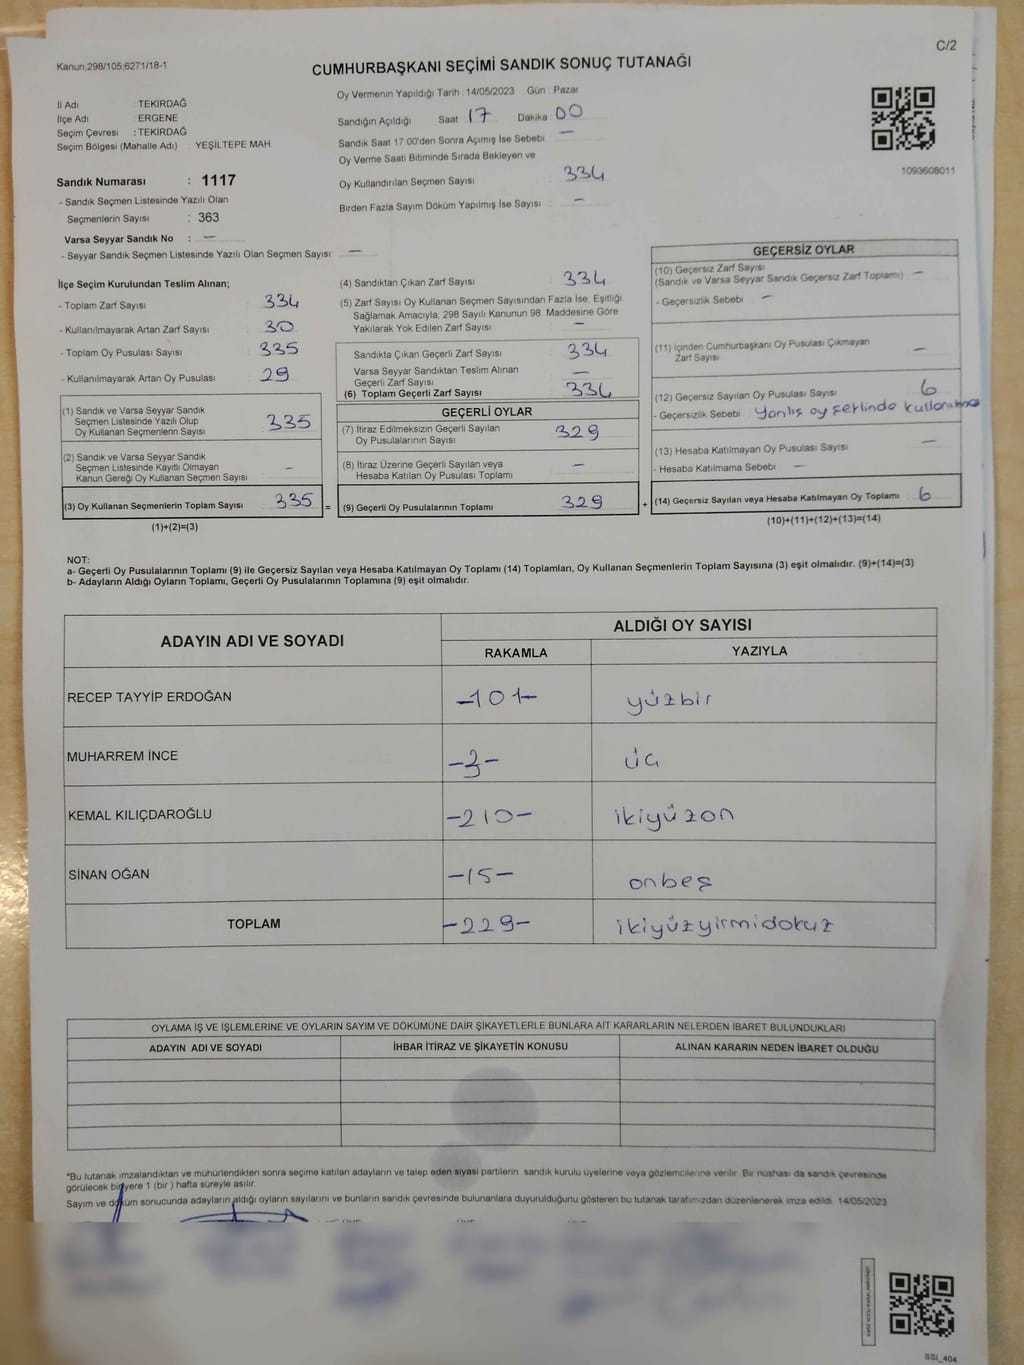 C/2
Kanun;298/105;6271/18-1
CUMHURBAŞKANI SEÇİMİ SANDIK SONUÇ TUTANAĞI
İl Adı TEKİRDAĞ
İlçe Adı ERGENE
Seçim Çevresi : TEKİRDAĞ
Seçim Bölgesi (Mahalle Adı) YEŞİLTEPE MAH
Sandık Numarası : 1117
- Sandık Seçmen Listesinde Yazılı Olan
Seçmenlerin Sayısı : 363
Varsa Seyyar Sandık No : -
- Seyyar Sandık Seçmen Listesinde Yazılı Olan Seçmen Sayısı -
Oy Vermenin Yapıldığı Tarih : 14/05/2023 Gün : Pazar
Sandığın Açıldığı Saat 17 Dakika 00
Sandık Saat 17:00'den Sonra Açımış İse Sebebi -
Oy Verme Saati Bitiminde Sırada Bekleyen ve
Oy Kullandırılan Seçmen Sayısı 334
Birden Fazla Sayım Döküm Yapılmış İse Sayısı : -
1093608011
İlçe Seçim Kurulundan Teslim Alınan;
- Toplam Zarf Sayısı 334
- Kullanılmayarak Artan Zarf Sayısı 30
- Toplam Oy Pusulası Sayısı 335
- Kullanılmayarak Artan Oy Pusulası 29
(1) Sandık ve Varsa Seyyar Sandık
Seçmen Listesinde Yazılı Olup
Oy Kullanan Seçmenlerin Sayısı 335
(2) Sandık ve Varsa Seyyar Sandık
Seçmen Listesinde Kayıtlı Olmayan
Kanun Gereği Oy Kullanan Seçmen Sayısı -
(3) Oy Kullanan Seçmenlerin Toplam Sayısı 335 =
(1)+(2)=(3)
(4) Sandıktan Çıkan Zarf Sayısı 334
(5) Zarf Sayısı Oy Kullanan Seçmen Sayısından Fazla İse, Eşitliği
Sağlamak Amacıyla, 298 Sayılı Kanunun 98. Maddesine Göre
Yakılarak Yok Edilen Zarf Sayısı -
Sandıkta Çıkan Geçerli Zarf Sayısı 334
Varsa Seyyar Sandıktan Teslim Alınan
Geçerli Zarf Sayısı -
(6) Toplam Geçerli Zarf Sayısı 334
GEÇERLİ OYLAR
(7) İtiraz Edilmeksizin Geçerli Sayılan
Oy Pusulalarının Sayısı 329
(8) İtiraz Üzerine Geçerli Sayılan veya
Hesaba Katılan Oy Pusulası Toplamı -
(9) Geçerli Oy Pusulalarının Toplamı 329 +
GEÇERSİZ OYLAR
(10) Geçersiz Zarf Sayısı
(Sandık ve Varsa Seyyar Sandık Geçersiz Zarf Toplamı) -
- Geçersizlik Sebebi -
(11) İçinden Cumhurbaşkanı Oy Pusulası Çıkmayan
Zarf Sayısı -
(12) Geçersiz Sayılan Oy Pusulası Sayısı 6
- Geçersizlik Sebebi Yanlış oy şeklinde kullanılması
(13) Hesaba Katılmayan Oy Pusulası Sayısı -
- Hesaba Katılmama Sebebi -
(14) Geçersiz Sayılan veya Hesaba Katılmayan Oy Toplamı 6
(10)+(11)+(12)+(13)=(14)
NOT:
a- Geçerli Oy Pusulalarının Toplamı (9) ile Geçersiz Sayılan veya Hesaba Katılmayan Oy Toplamı (14) Toplamları, Oy Kullanan Seçmenlerin Toplam Sayısına (3) eşit olmalıdır. (9)+(14)=(3)
b- Adayların Aldığı Oyların Toplamı, Geçerli Oy Pusulalarının Toplamına (9) eşit olmalıdır.
ADAYIN ADI VE SOYADI ALDIĞI OY SAYISI
RAKAMLA YAZIYLA
RECEP TAYYİP ERDOĞAN -101- yüzbir
MUHARREM İNCE -3- üç
KEMAL KILIÇDAROĞLU -210- ikiyüzon
SİNAN OĞAN -15- onbeş
TOPLAM -229- ikiyüzyirmidokuz
OYLAMA İŞ VE İŞLEMLERİNE VE OYLARIN SAYIM VE DÖKÜMÜNE DAİR ŞİKAYETLERLE BUNLARA AİT KARARLARIN NELERDEN İBARET BULUNDUKLARI
ADAYIN ADI VE SOYADI İHBAR İTİRAZ VE ŞİKAYETİN KONUSU ALINAN KARARIN NEDEN İBARET OLDUĞU
*Bu tutanak imzalandıktan ve mühürlendikten sonra seçime katılan adayların ve talep eden siyasi partilerin sandık kurulu üyelerine veya gözlemcilerine verilir. Bir nüshası da sandık çevresinde
görülecek bir yere 1 (bir ) hafta süreyle asılır.
Sayım ve döküm sonucunda adayların aldığı oyların sayılarını ve bunların sandık çevresinde bulunanlara duyurulduğunu gösteren bu tutanak tarafımızdan düzenlenerek imza edildi. 14/05/2023
SSİ_404